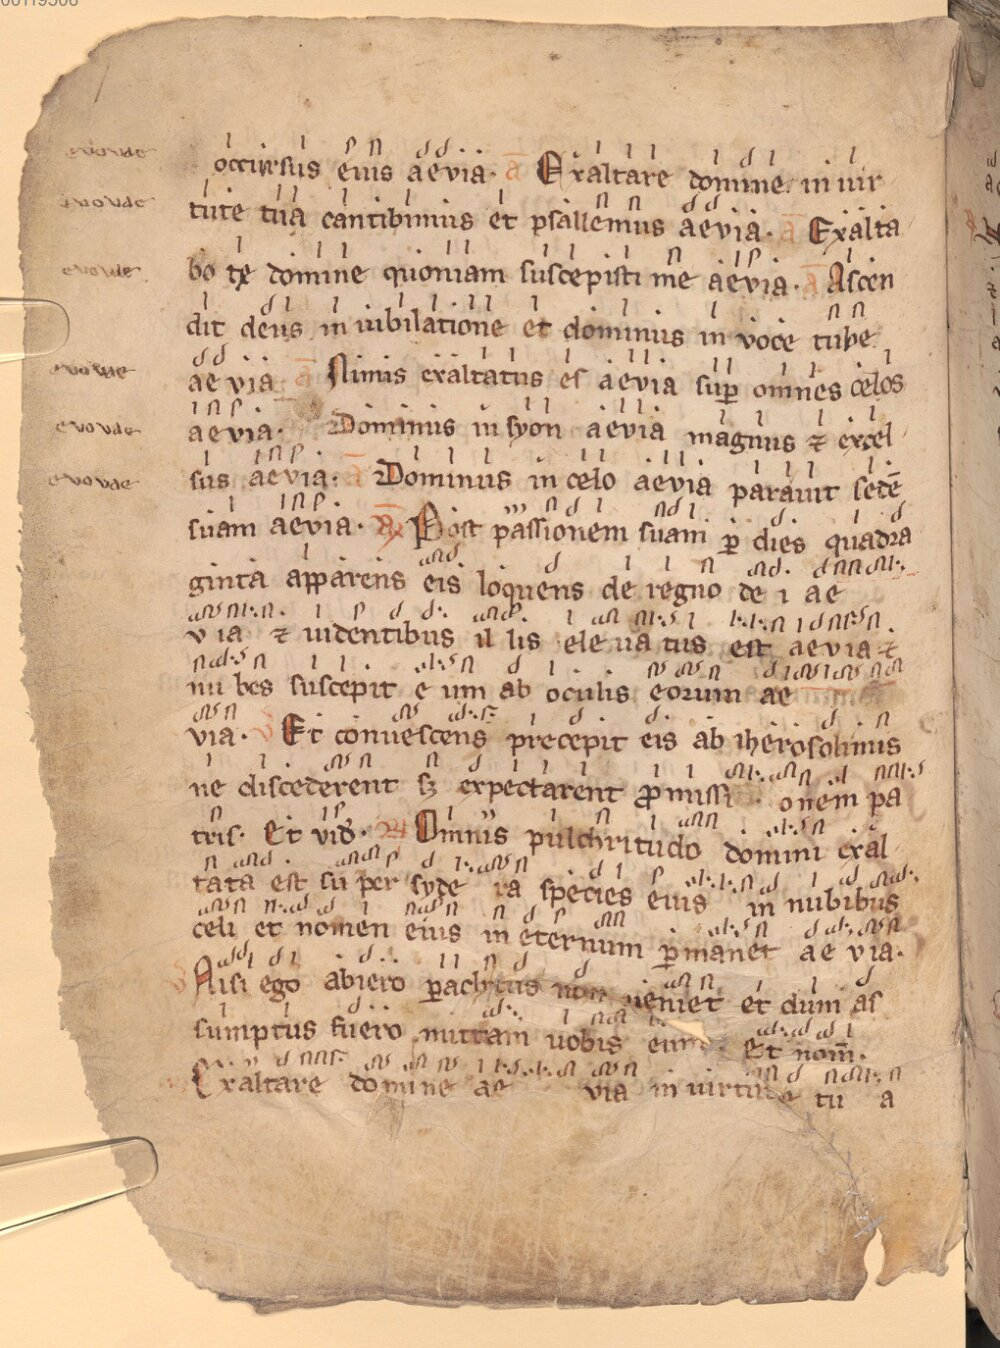 occursus eius aevia. a Exaltare domine in uir
tute tua cantibimus et psallemus aevia. a Exalta
bo te domine quoniam suscepisti me aevia. a Ascen
dit deus in iubilatione et dominus in voce tube
aevia a Nimis exaltatus es aevia sup omnes celos
aevia. Dominus in syon aevia magnus ⁊ excel
sus aevia. a Dominus in celo aevia parauit sedē
suam aevia. Post passionem suam p dies quadra
ginta apparens eis loquens de regno de i ae
v ia ⁊ uidentibus il lis ele ua tus est aevia ⁊
nu bes suscepit e um ab oculis eorum ae
via. V Et conuescens precepit eis ab iherosolimis
ne discederent sꝫ expectarent promissi onem pa
tris. Et vid. Omnis pulchritudo domini exal
tata est su per syde ra species eius in nubibus
celi et nomen eius in eternum pmanet ae via.
Nisi ego abiero paclitus non ueniet et dum as
sumptus fuero mittam uobis eum. Et nom̄.
Exaltare domine ae via in uirtute tu a
evovae
evovae
evovae
evovae
evovae
evovae